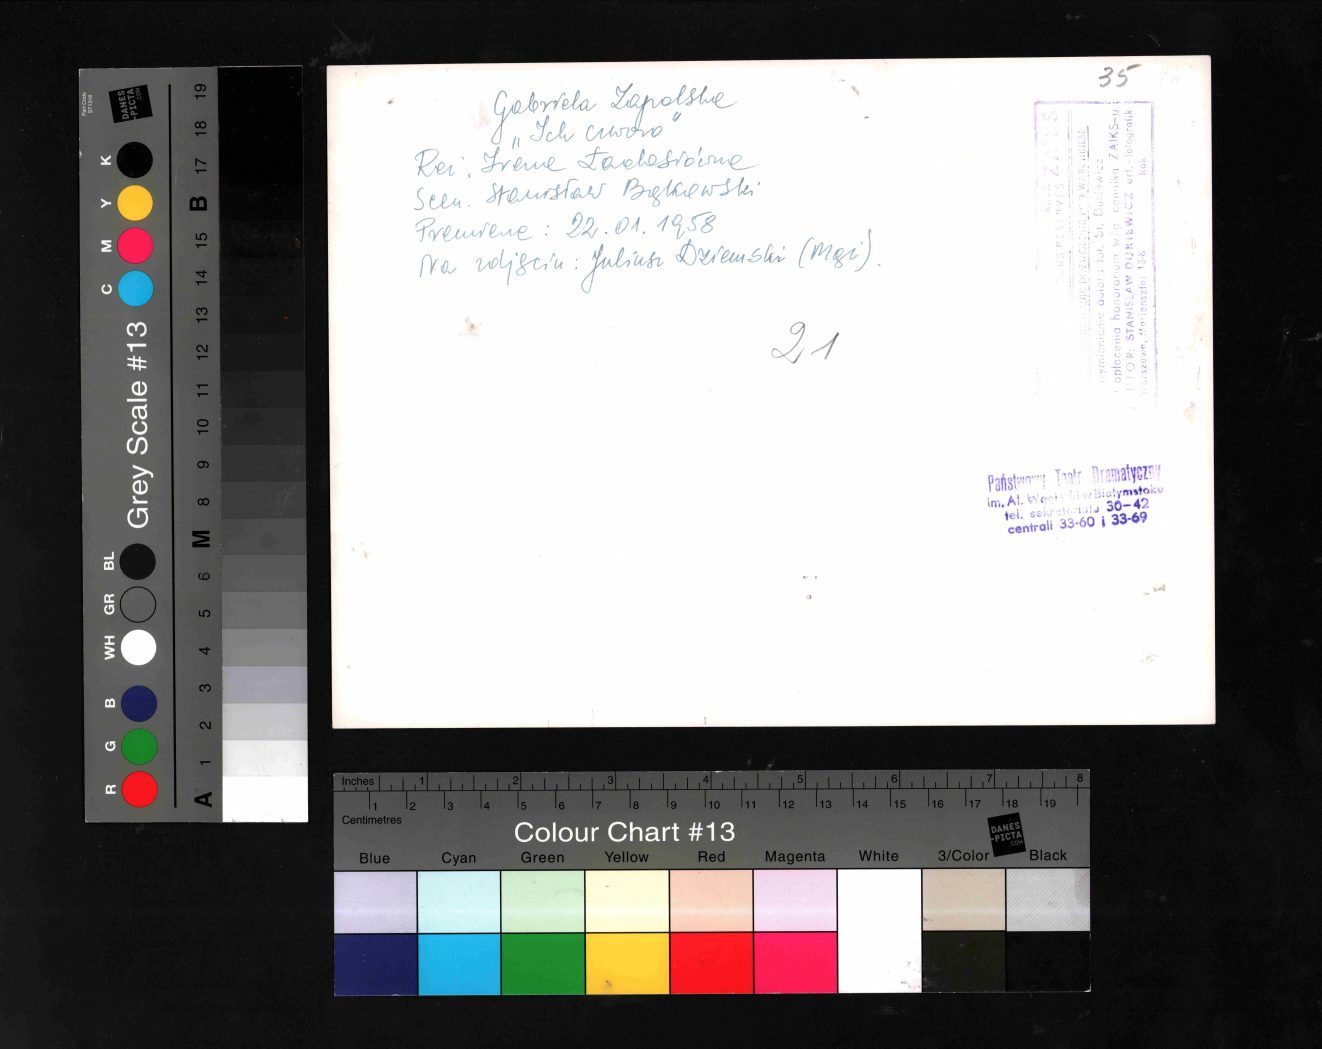 35
Gabriela Zapolska
„Ich czworo"
Reż. Irena Ładosiówna
Scen. Stanisław Bąkowski
Premiera: 22.01.1958
Na zdjęciu: Juliusz Dziemski (Mąż).
21
wymienienie autora fot. St. Dukiewicz
i opłacenia honorarium w/g. cennika ZAIKS-u
AUTOR: STANISŁAW DUKIEWICZ art. fotografik
Warszawa, Mariensztat 13-8 Rok
Państwowy Teatr Dramatyczny
im. Al. Węgierki w Białymstoku
tel. sekretariatu 30-42
centrali 33-60 i 33-69
Part Code
DANES
-PICTA
.COM
Grey Scale #13
R G B WH GR BL C M Y K
A 1 2 3 4 5 6 M 8 9 10 11 12 13 14 15 B 17 18 19
Inches 1 2 3 4 5 6 7 8
1 2 3 4 5 6 7 8 9 10 11 12 13 14 15 16 17 18 19
Centimetres
Colour Chart #13
DANES
-PICTA
.COM
Blue Cyan Green Yellow Red Magenta White 3/Color Black